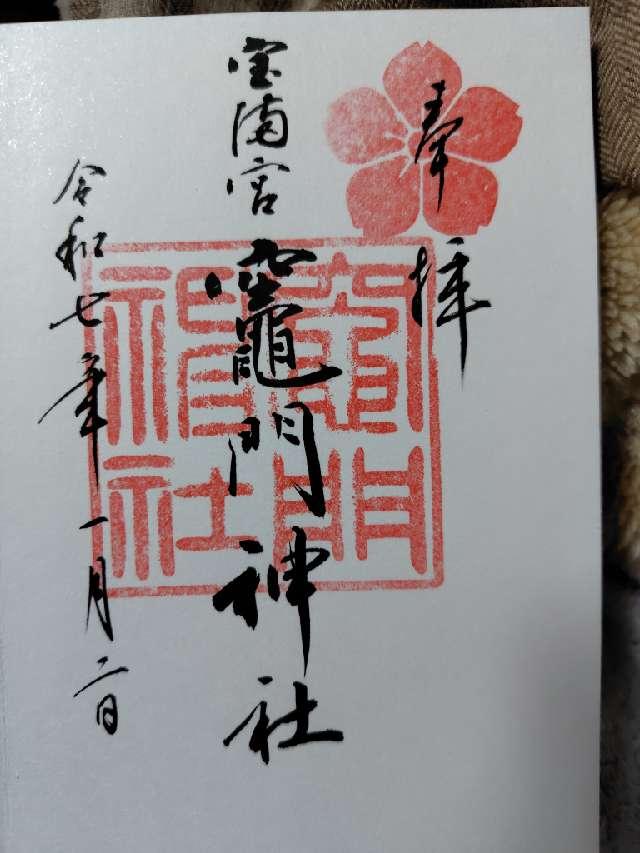 奉拝
宝満宮 竈門神社
令和七年一月二日
竈門
神社